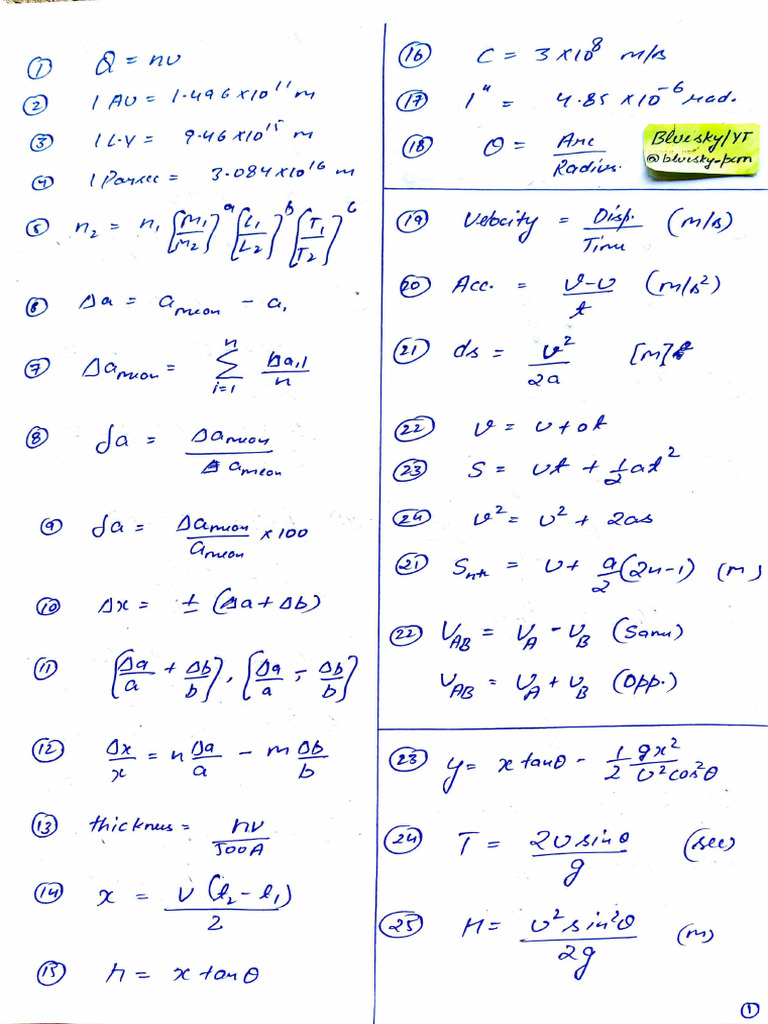 ① Q = nu
② 1 AU = 1.496 × 10¹¹ m
③ 1 L.Y = 9.46 × 10¹⁵ m
④ 1 Parsec = 3.084 × 10¹⁶ m
⑤ n₂ = n₁ [M₁/M₂]ᵃ [L₁/L₂]ᵇ [T₁/T₂]ᶜ
⑥ Δa = a mean − a₁
⑦ Δa mean = Σ (i=1 to n) |Δa₁|/n
⑧ δa = Δa mean / a mean
⑨ δa = Δa mean / a mean × 100
⑩ Δx = ± (Δa + Δb)
⑪ [Δa/a + Δb/b], [Δa/a − Δb/b]
⑫ Δx/x = n Δa/a − m Δb/b
⑬ thickness = nv/500A
⑭ x = v (t₂ − t₁) / 2
⑮ h = x tanθ
⑯ C = 3 × 10⁸ m/s
⑰ 1" = 4.85 × 10⁻⁶ rad.
⑱ θ = Arc / Radius.
Bluesky/YT
@bluesky-pcm
⑲ Velocity = Disp. / Time (m/s)
⑳ Acc. = v − u / t (m/s²)
㉑ ds = v² / 2a [m]
㉒ v = u + at
㉓ S = ut + ½ at²
㉔ v² = u² + 2as
㉑ Snth = u + a/2 (2n−1) (m)
㉒ VAB = VA − VB (Same)
VAB = VA + VB (Opp.)
㉓ y = x tanθ − ½ gx² / u² cos²θ
㉔ T = 2u sinθ / g (sec)
㉕ H = u² sin²θ / 2g (m)
①